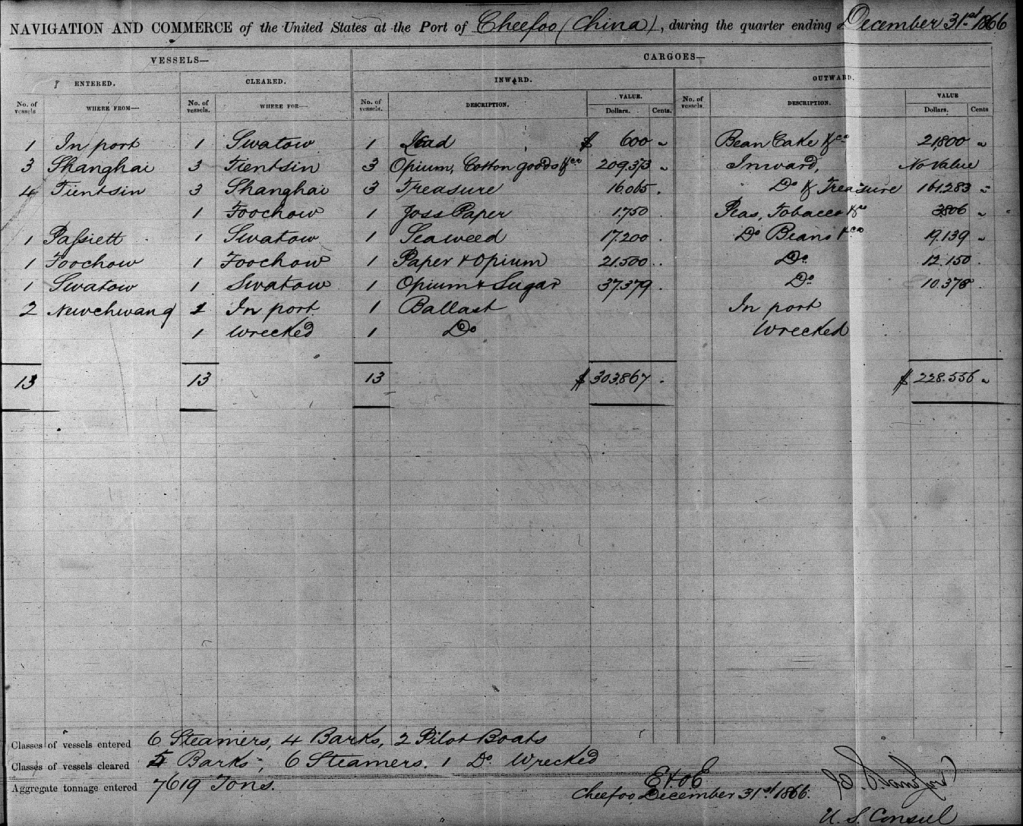 NAVIGATION AND COMMERCE of the United States at the Port of Cheefoo (China), during the quarter ending December 31st 1866
VESSELS— CARGOES—
ENTERED. CLEARED. INWARD. OUTWARD.
No. of vessels. WHERE FROM— No. of vessels. WHERE FOR— No. of vessels. DESCRIPTION. VALUE. Dollars. Cents. No. of vessels. DESCRIPTION. VALUE Dollars. Cents
1 In port 1 Swatow 1 Lead $ 600 " Bean Cake &co 21,800 "
3 Shanghai 3 Tientsin 3 Opium, Cotton goods &co 209.373 " Inward, No Value
4 Tientsin 3 Shanghai 3 Treasure 16,065 " Do & Treasure 161.283 "
1 Foochow 1 Joss Paper 1.750 Peas, Tobacco &co 3806 "
1 Passiett 1 Swatow 1 Seaweed 17.200 .. Do Beans &co 19.139 "
1 Foochow 1 Foochow 1 Paper & Opium 21.500 .. Do 12.150 "
1 Swatow 1 Swatow 1 Opium & Sugar 37.379 .. Do 10.378 "
2 Newchwang 1 In port 1 Ballast In port
1 Wrecked 1 Do Wrecked
13 13 13 $ 303.867 . $ 228.556 "
Classes of vessels entered 6 Steamers, 4 Barks, 2 Pilot Boats
Classes of vessels cleared 5 Barks, 6 Steamers, 1 Do Wrecked
Aggregate tonnage entered 7619 Tons.
E & OE
Cheefoo December 31st 1866.
U. S. Consul